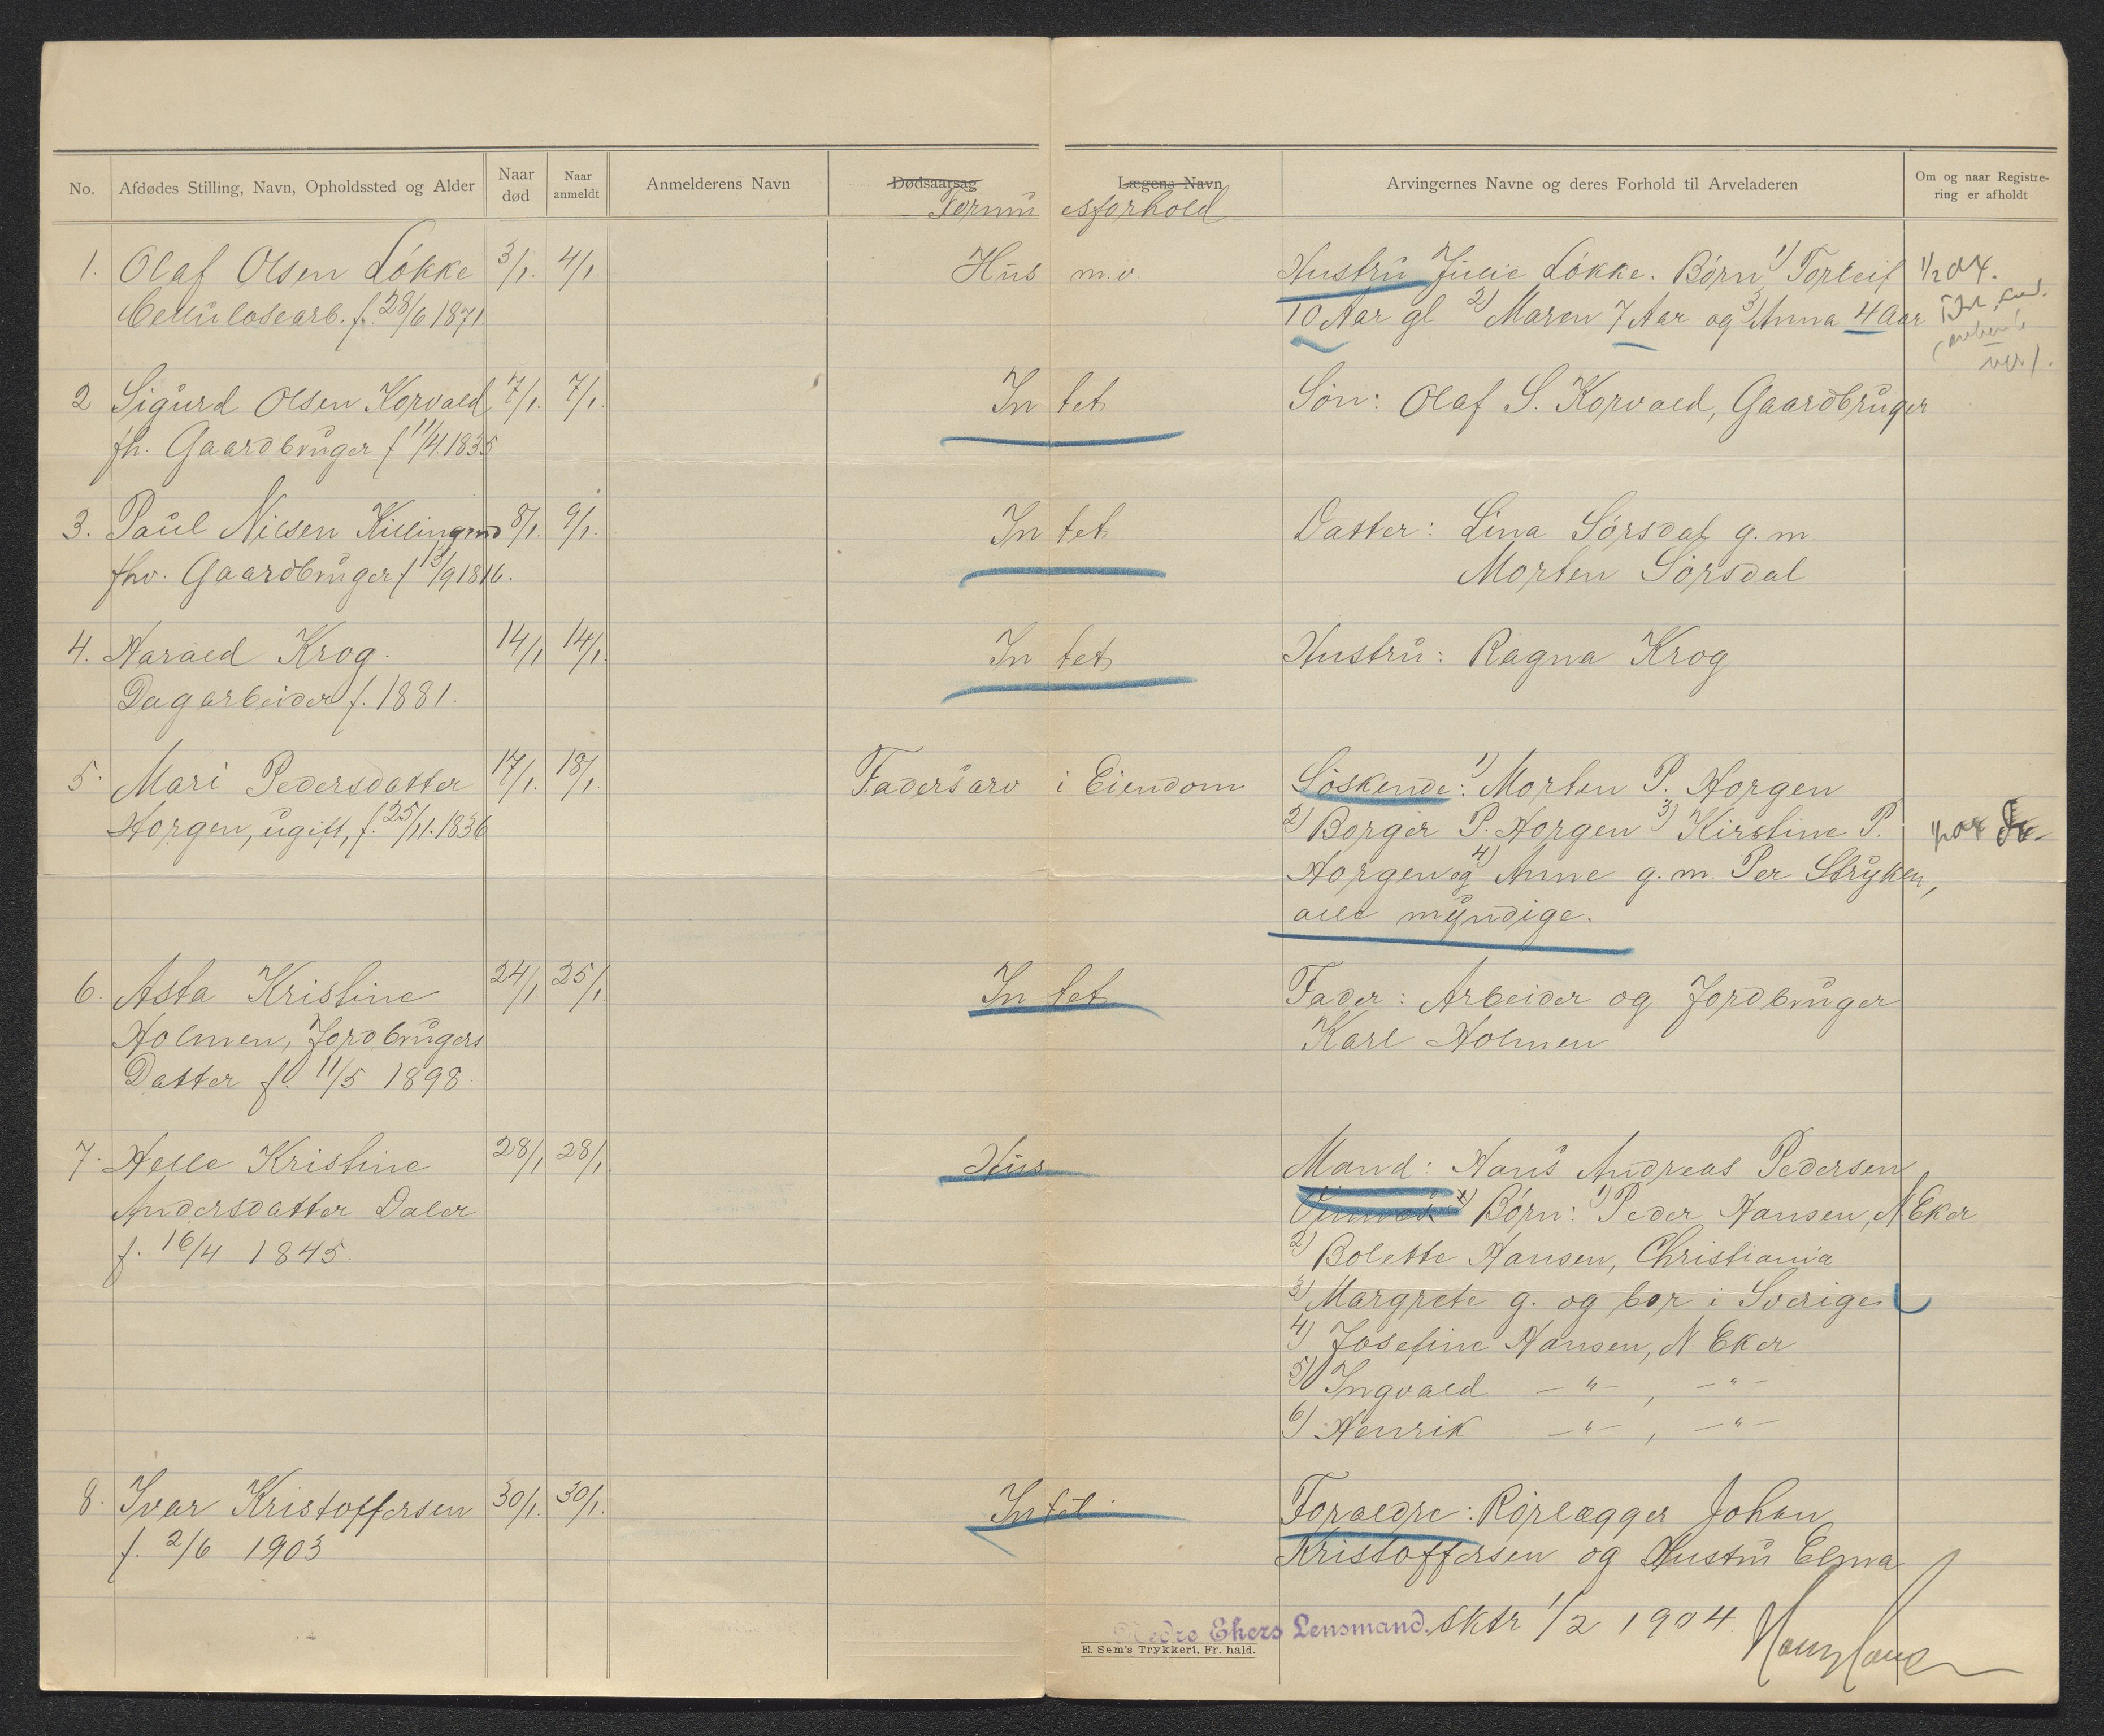 No. Afdødes Stilling, Navn, Opholdssted og Alder Naar død Naar anmeldt Anmelderens Navn Dødsaarsag Lægens Navn Arvingernes Navne og deres Forhold til Arveladeren Om og naar Registrering er afholdt
Formuesforhold
1. Olaf Olsen Løkke 3/1. 4/1 Hus m.v. Hustru Julie Løkke. Børn 1) Torleif
Cellulosearb. f. 28/6 1871 10 Aar gl 2) Maren 7 Aar og 3) Anna 4 Aar
2 Sigurd Olsen Korvald 7/1. 7/1. Intet Søn: Olaf S. Korvald, Gaardbruger
fh. Gaardbruger f 11/4.1835
3. Paul Nilsen Killingrud 8/1. 9/1. Intet Datter: Lina Sørsdal g.m.
fhv. Gaardbruger f 13/9 1816. Morten Sørsdal
4. Harald Krog. 14/1 14/1. Intet Hustru: Ragna Krog
Dagarbeider f. 1881.
5. Mari Pedersdatter 17/1. 18/1. Fadersarv i Eiendom Søskende: 1) Morten P. Horgen
Horgen, ugift, f. 25/11.1836 2) Borger P. Horgen 3) Kirstine P.
Horgen og 4) Anne g.m. Per Stryken,
alle myndige.
6. Asta Kristine 24/1. 25/1 Intet Fader: Arbeider og Jordbruger
Holmen, Jordbrugers Karl Holmen
Datter f. 11/5 1898.
7. Helle Kristine 28/1 28/1. Hus Mand: Hans Andreas Pedersen
Andersdatter Daler Børn: 1) Peder Hansen, N Eker
f. 16/4 1845. 2) Bolette Hansen, Christiania
3) Margrete g. og bor i Sverige
4) Josefine Hansen, N. Eker
5) Ingvald — " — , — " —
6) Henrik — " — , — " —
8. Ivar Kristoffersen 30/1. 30/1. Intet Forældre: Rørlægger Johan
f. 2/6 1903 Kristoffersen og Hustru Elma
Nedre Ekers Lensmand. sktr 1/2 1904.
E. Sem's Trykkeri. Fr. hald.